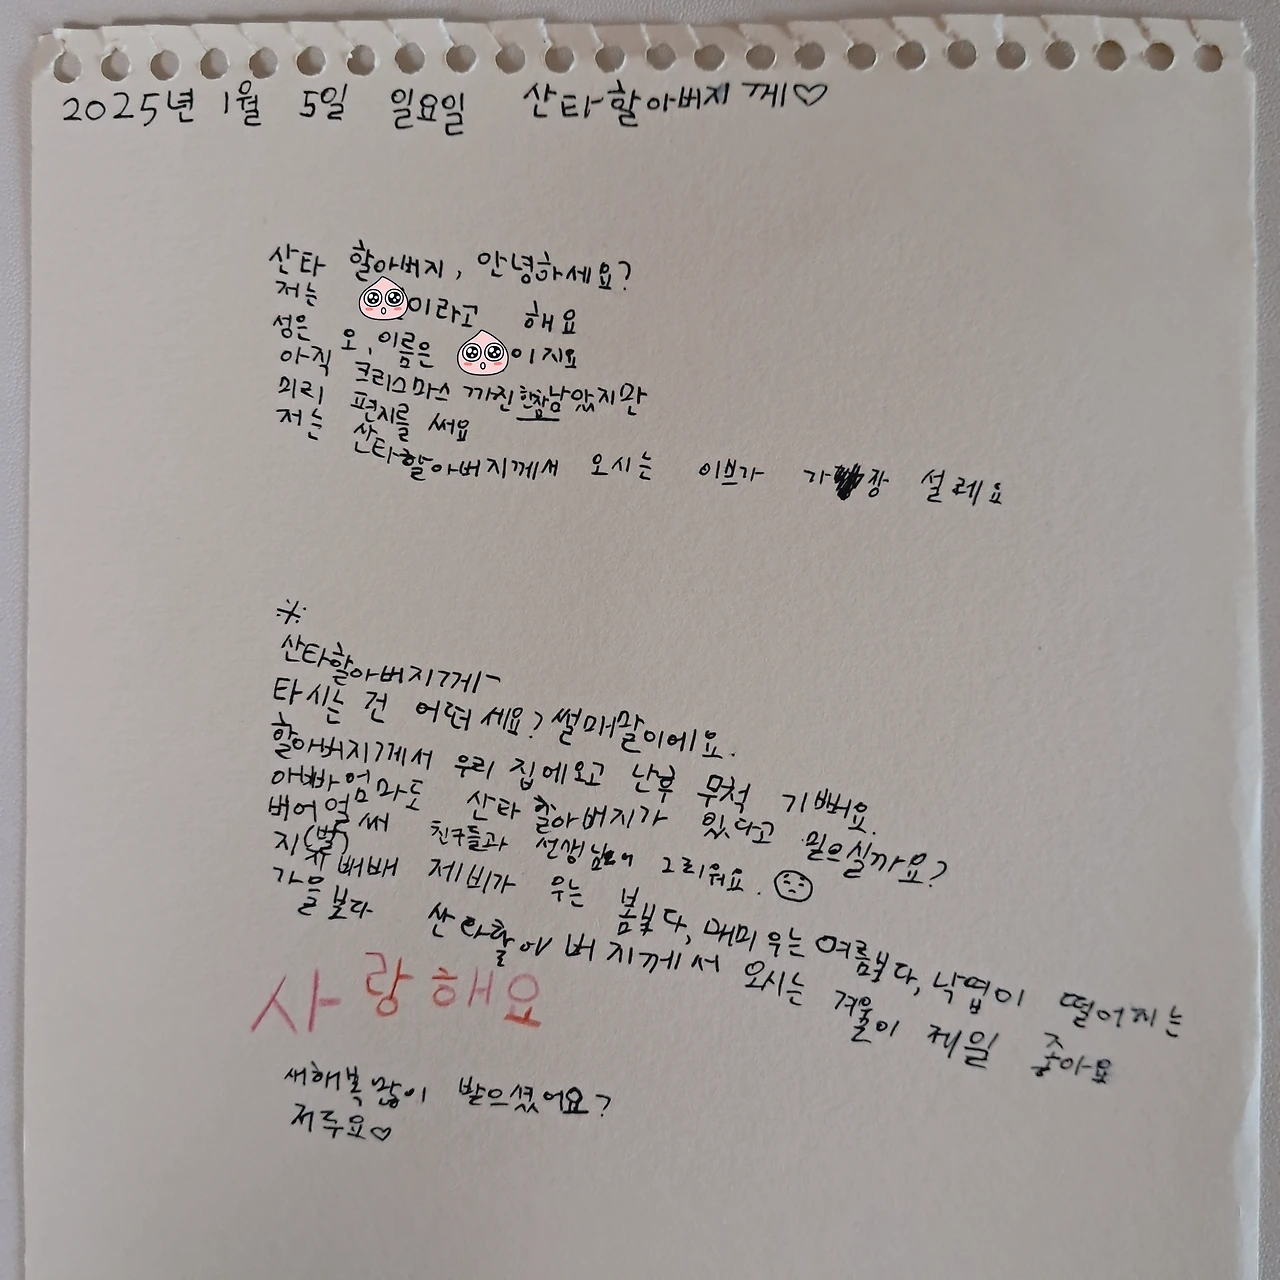 2025년 1월 5일 일요일 산타할아버지께♡
산타 할아버지, 안녕하세요?
저는 이라고 해요
성은 오, 이름은 이지요
아직 크리스마스 까진 한참남았지만
미리 편지를 써요
저는 산타할아버지께서 오시는 이브가 가장 설레요
※
산타할아버지께~
타시는 건 어떠세요? 썰매말이에요.
할아버지께서 우리 집에오고 난후 무척 기뻐요.
아빠엄마도 산타 할아버지가 있다고 믿으실까요?
버어얼써 친구들과 선생님이 그리워요.
(벌)
지지배배 제비가 우는 봄보다, 매미 우는 여름보다, 낙엽이 떨어지는
가을보다 산타할아버지께서 오시는 겨울이 제일 좋아요
사랑해요
새해복많이 받으셨어요?
저두요♡